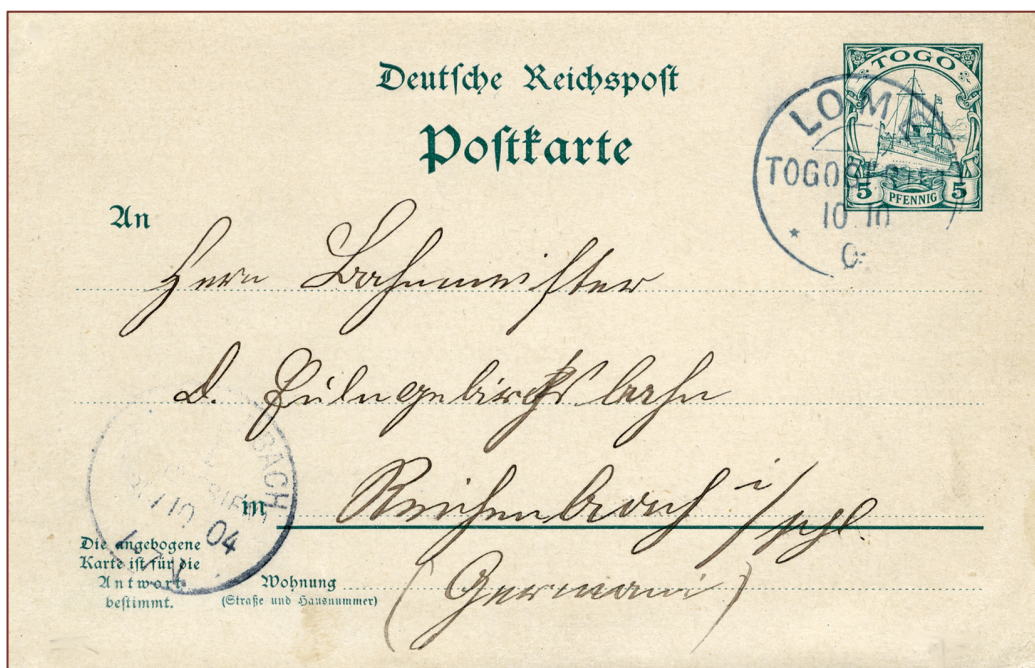 Deutsche Reichspost
Postkarte
TOGO
5 PFENNIG 5
LOME
TOGOGEBIET
10.10
An
Herrn Bahnmeister
d. Eulengebirgsbahn
BACH
10 04
in Reichenbach i/Schl.
(Germani)
Die angebogene
Karte ist für die
Antwort
bestimmt.
Wohnung
(Straße und Hausnummer)